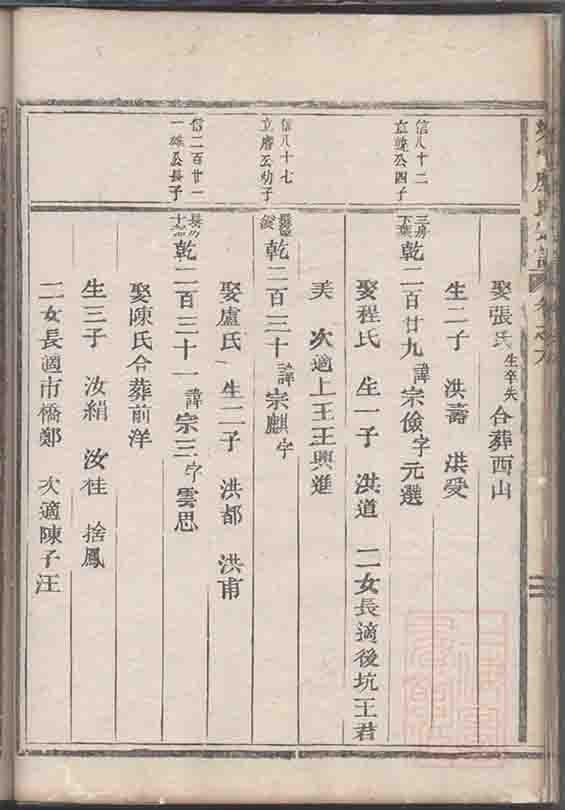 娶張氏 生卒失 合葬西山
生二子 洪壽 洪受
信八十二
公四子
三房
乾二百廿九 諱宗儉 字元選
娶程氏 生一子 洪道 二女長適後坑王君
美 次適上王王興進
信八十七
立 公幼子
乾二百三十 諱宗麒 字
娶盧氏 生二子 洪都 洪甫
信二百廿一
一 公長子
乾二百三十一 諱宗三 字雲思
娶陳氏合葬前洋
生三子 汝絹 汝桂 捨鳳
二女長適市橋鄭 次適陳子汪